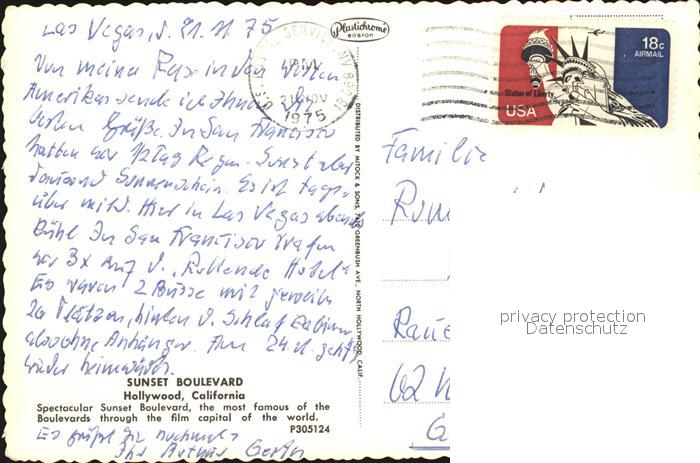 Las Vegas, d. 21.11.75
Von meiner Reise in den Westen
Amerikas sende ich Ihnen die
besten Grüße. In San Francisco
hatten wir 1/2 Tag Regen. Sonst aber
dauernd Sonnenschein. Es ist tags-
über mild. Hier in Las Vegas abends
kühl. In San Francisco trafen
wir 3x auf d. "Rollende Hotel"
Es waren 2 Busse mit jeweils
20 Plätzen, hinten d. Schlafkabinen
also ohne Anhänger. Am 24.11. geht's
wieder heimwärts.
SUNSET BOULEVARD
Hollywood, California
Spectacular Sunset Boulevard, the most famous of the
Boulevards through the film capital of the world.
P305124
Es grüßt Sie nochmals
Ihr Arthur
U.S. POSTAL SERVICE, NV
PM
21 NOV
1975
Plastichrome
BOSTON
DISTRIBUTED BY MITOCK & SONS, GREENBUSH AVE., NORTH HOLLYWOOD, CALIF.
18c
AIRMAIL
Statue of Liberty
USA
Familie
62
privacy protection
Datenschutz